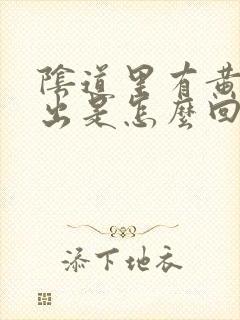 陰道里有黄
出是怎麼回
添下地衣